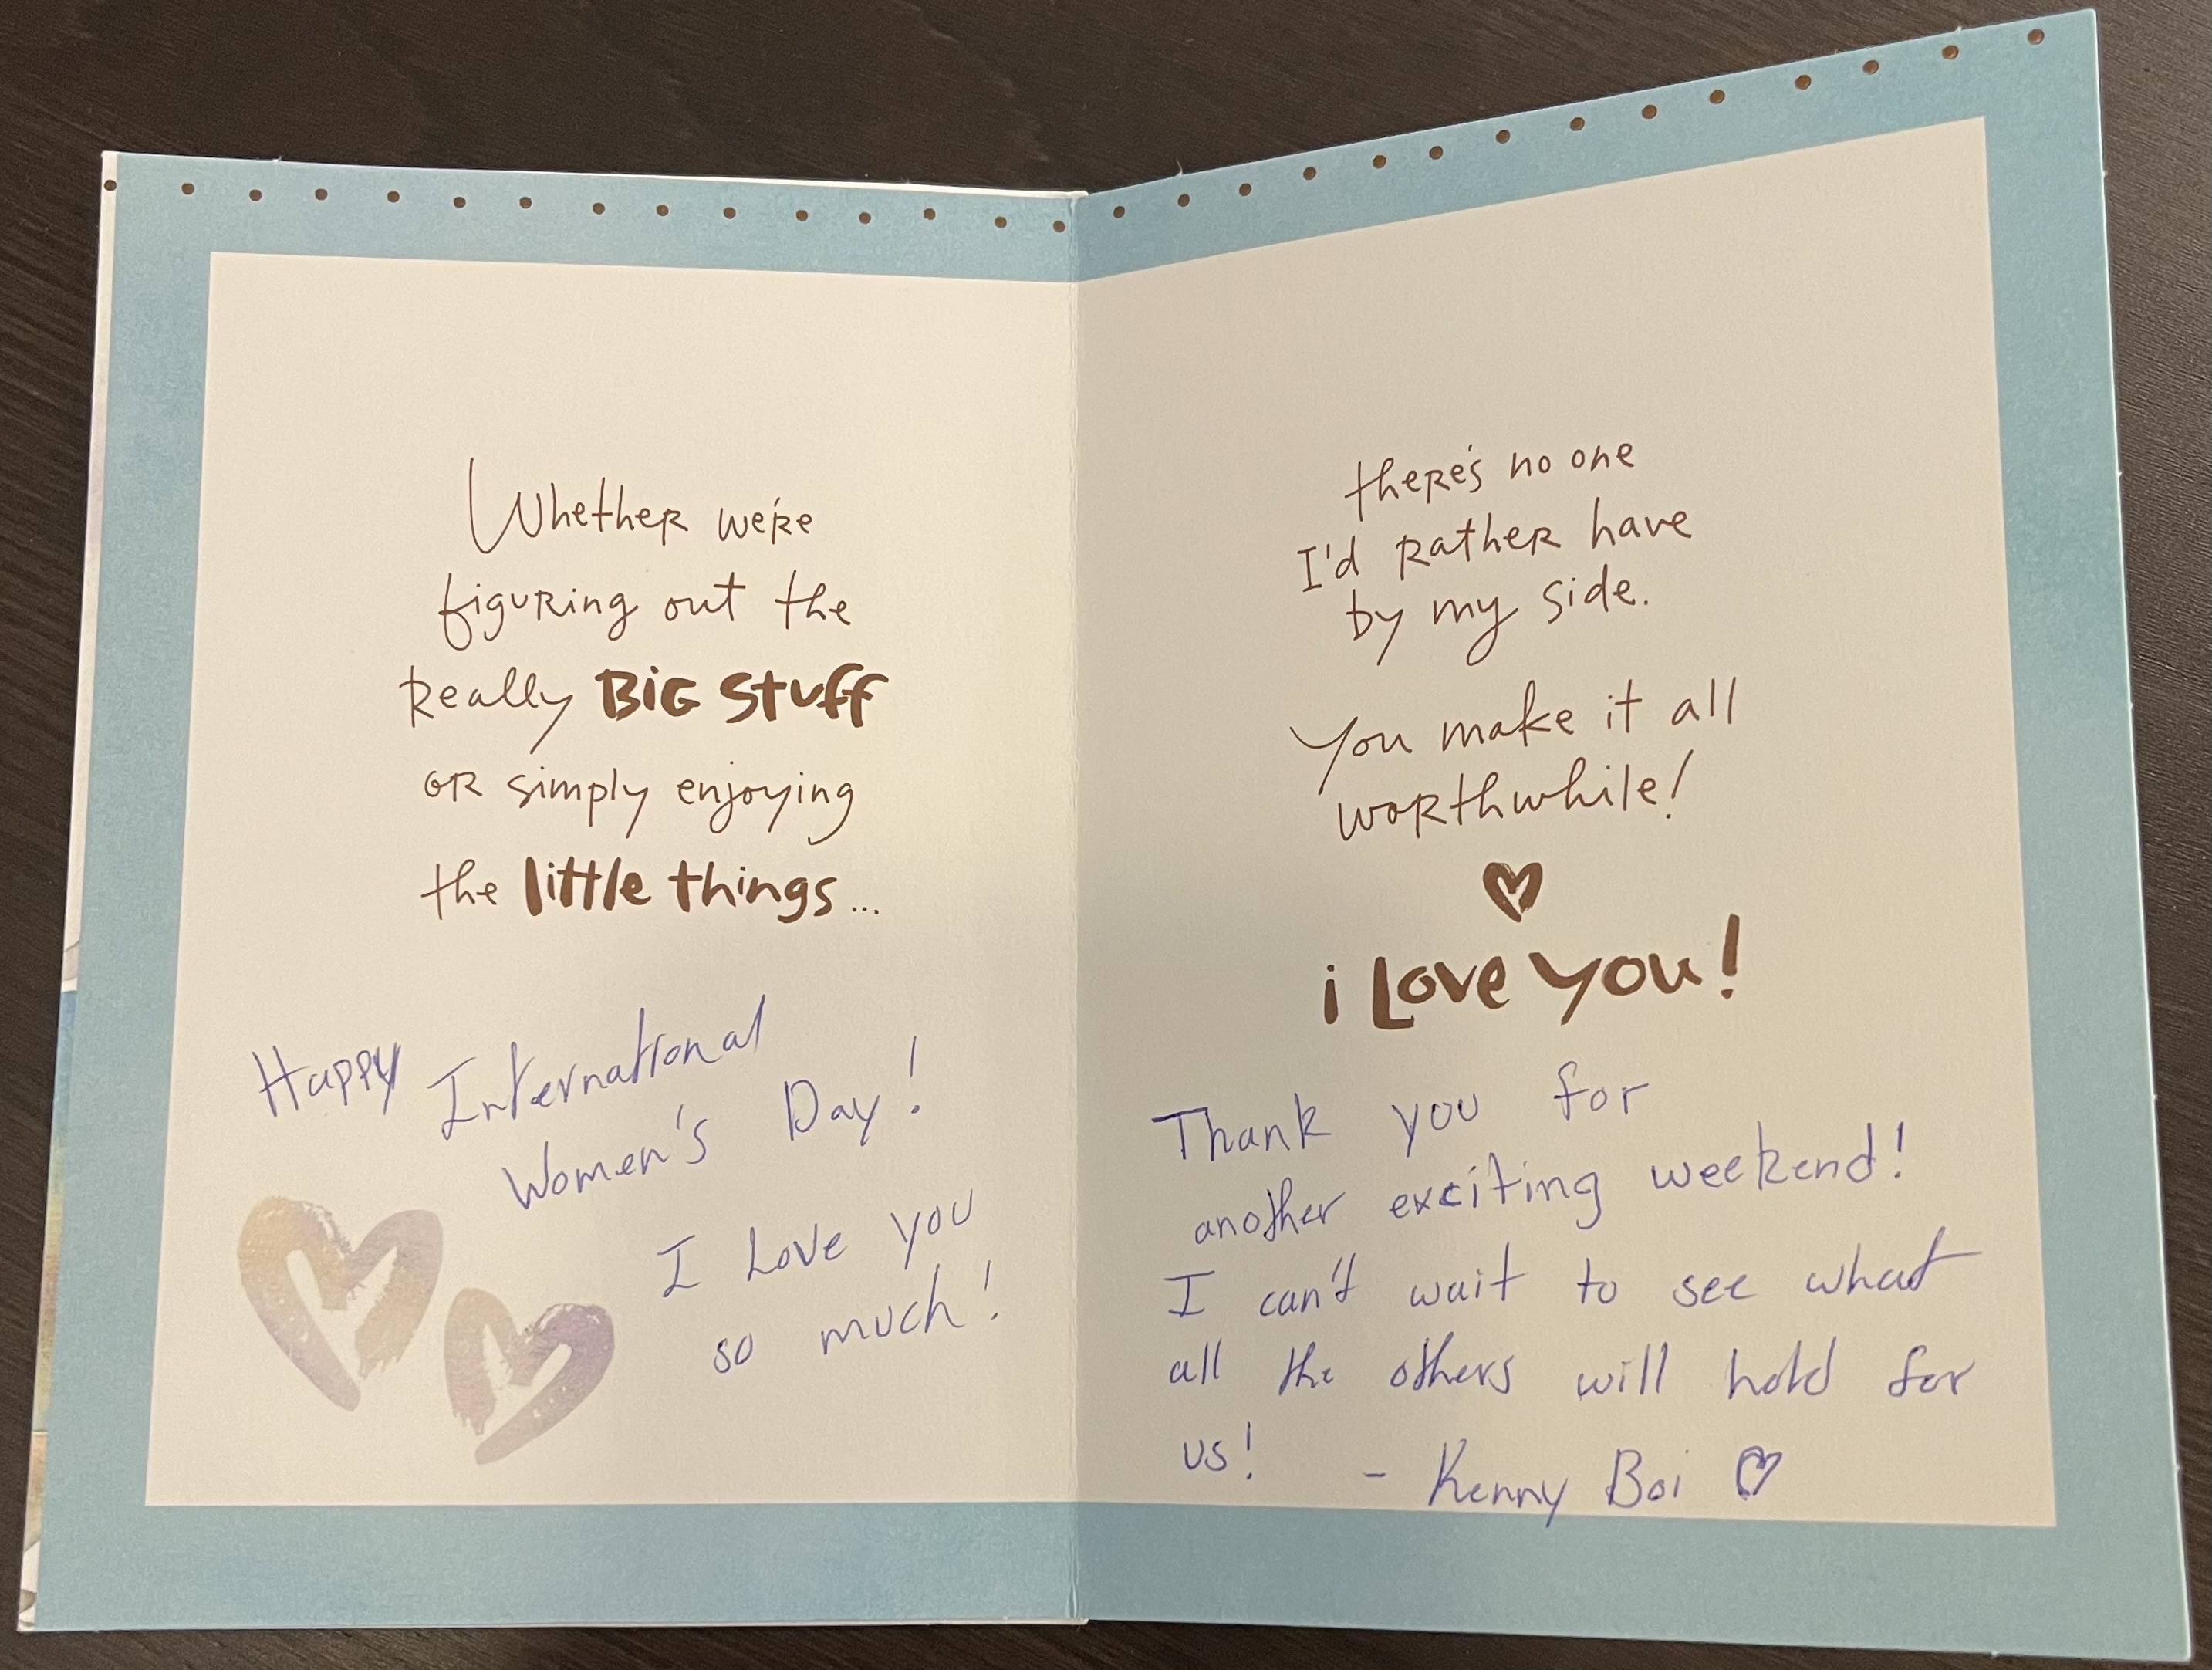 Whether we're
figuring out the
Really BiG Stuff
or simply enjoying
the little things...
Happy International
Women's Day!
I Love you
so much!
there's no one
I'd rather have
by my side.
You make it all
worthwhile!
i Love you!
Thank you for
another exciting weekend!
I can't wait to see what
all the others will hold for
us! - Kenny Boi ♡